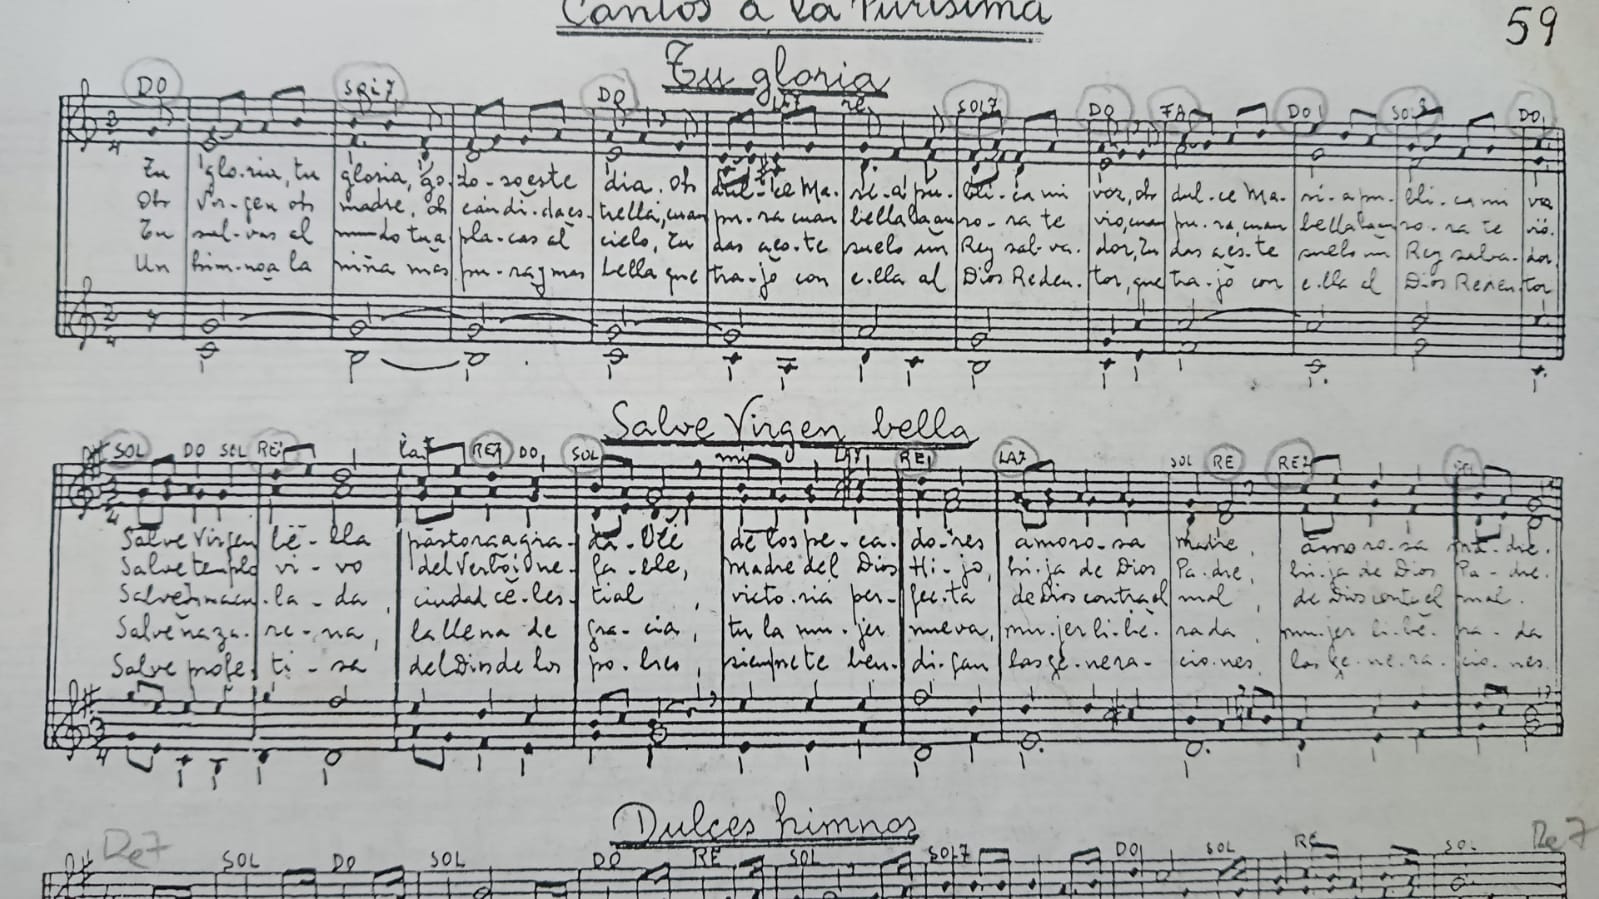 Cantos a la Purísima
59
Tu gloria
DO SOL7 DO LA7 re SOL7 DO FA DO SOL7 DO
Tu glo-ria, tu gloria, go-zo-so este dia. Oh dul-ce Ma-ri-a pu-bli-ca mi voz, oh dul-ce Ma-ri-a pu-bli-ca mi voz
Oh Vir-gen oh madre, oh cándi-da es-trella, cuan pu-ra cuan bella la au-ro-ra te vio, cuan pu-ra, cuan bella la au-ro-ra te vió.
Tu sal-vas al mundo tu a-pla-cas al cielo, Tu das a es-te suelo un Rey sal-va-dor, Tu das a es-te suelo un Rey salva-dor
Un him-no a la niña más pu-ra y mas bella que tra-jo con e-lla al Dios Reden-tor, que tra-jo con e-lla al Dios Reden-tor
Salve Virgen bella
SOL DO SOL RE la RE7 DO SOL mi LA7 RE LA7 SOL RE RE7
Salve Virgen be-lla pastora a gra-da-ble de los pe-ca-do-res amoro-sa madre, amo-ro-sa ma-dre.
Salve templo vi-vo del Verbo ine-fa-ble, madre del Dios Hi-jo, hi-ja de Dios Pa-dre, hi-ja de Dios Pa-dre.
Salve Inmacu-la-da, ciudad ce-les-tial, victo-ria per-fecta de Dios contra el mal, de Dios contra el mal.
Salve naza-re-na, la llena de gra-cia, tu la mu-jer nueva, mu-jer li-be-rada, mu-jer li-be-ra-da
Salve profe-ti-sa del Dios de los po-bres, siempre te ben-di-gan las ge-nera-cio-nes, las ge-ne-ra-cio-nes.
Dulces himnos
Re7 SOL DO SOL DO RE SOL SOL7 DO SOL RE SOL Re7